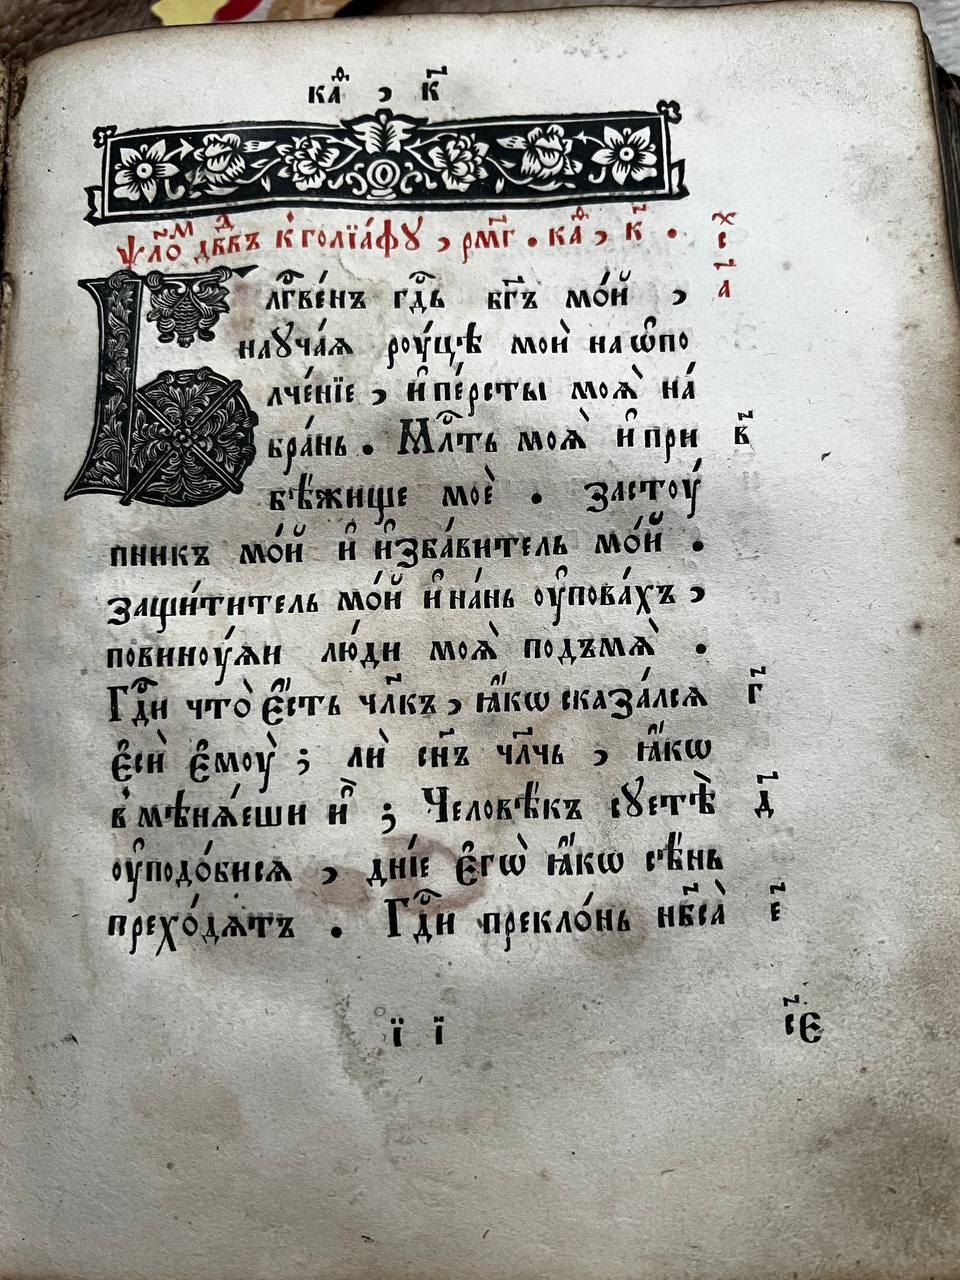 каⷴ , к҃
ѱло́ⷨ дв҃дъ к̾ голїа́фꙋ , рм҃г . каⷴ , к҃ . сⷯ
Бл҃гве́нъ гдⷭ҇ь бг҃ъ мо́й , а҃
наꙋча́ѧ роу́цѣ мои̑ на ѡ҆по
лче́нїе , и҆ пе́рсты моѧ̀ на́
бра́нь . Млⷭ҇ть моѧ̀ и҆ при в҃
бѣ́жище моѐ . застоу́
пникъ мо́й и҆ и҆зба́витель мо́й .
защи́титель мо́й и҆ на́нь оу҆пова́хъ ,
повиноу́ѧи лю́ди моѧ̀ подъ мѧ̀ .
Гдⷭ҇и что̀ є҆́сть чл҃къ , ꙗ҆́кѡ сказа́лсѧ г҃
є҆сѝ є҆моу̀ ; лѝ сн҃ъ чл҃чь , ꙗ҆́кѡ
в̾мѣнѧ́еши и҆̀ ; Человѣ́къ сꙋетѣ̀ д҃
оу҆подо́бисѧ , дні́е є҆гѡ̀ ꙗ҆́кѡ сѣ́нь
прехо́дѧтъ . Гдⷭ҇и прекло́нь нб҃са̀ є҃
ї ї с҃є